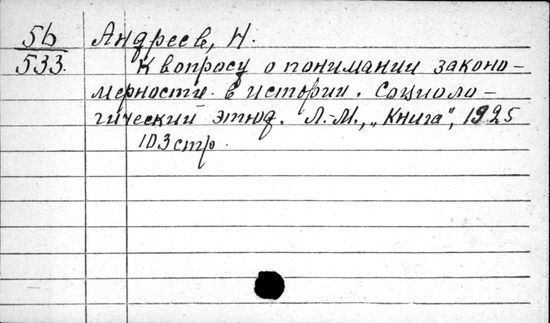 56 Андреев, Н.
533. К вопросу о понимании законо-
мерности в истории. Социоло-
гический этюд. Л.-М., „Книга", 1925
103 стр.